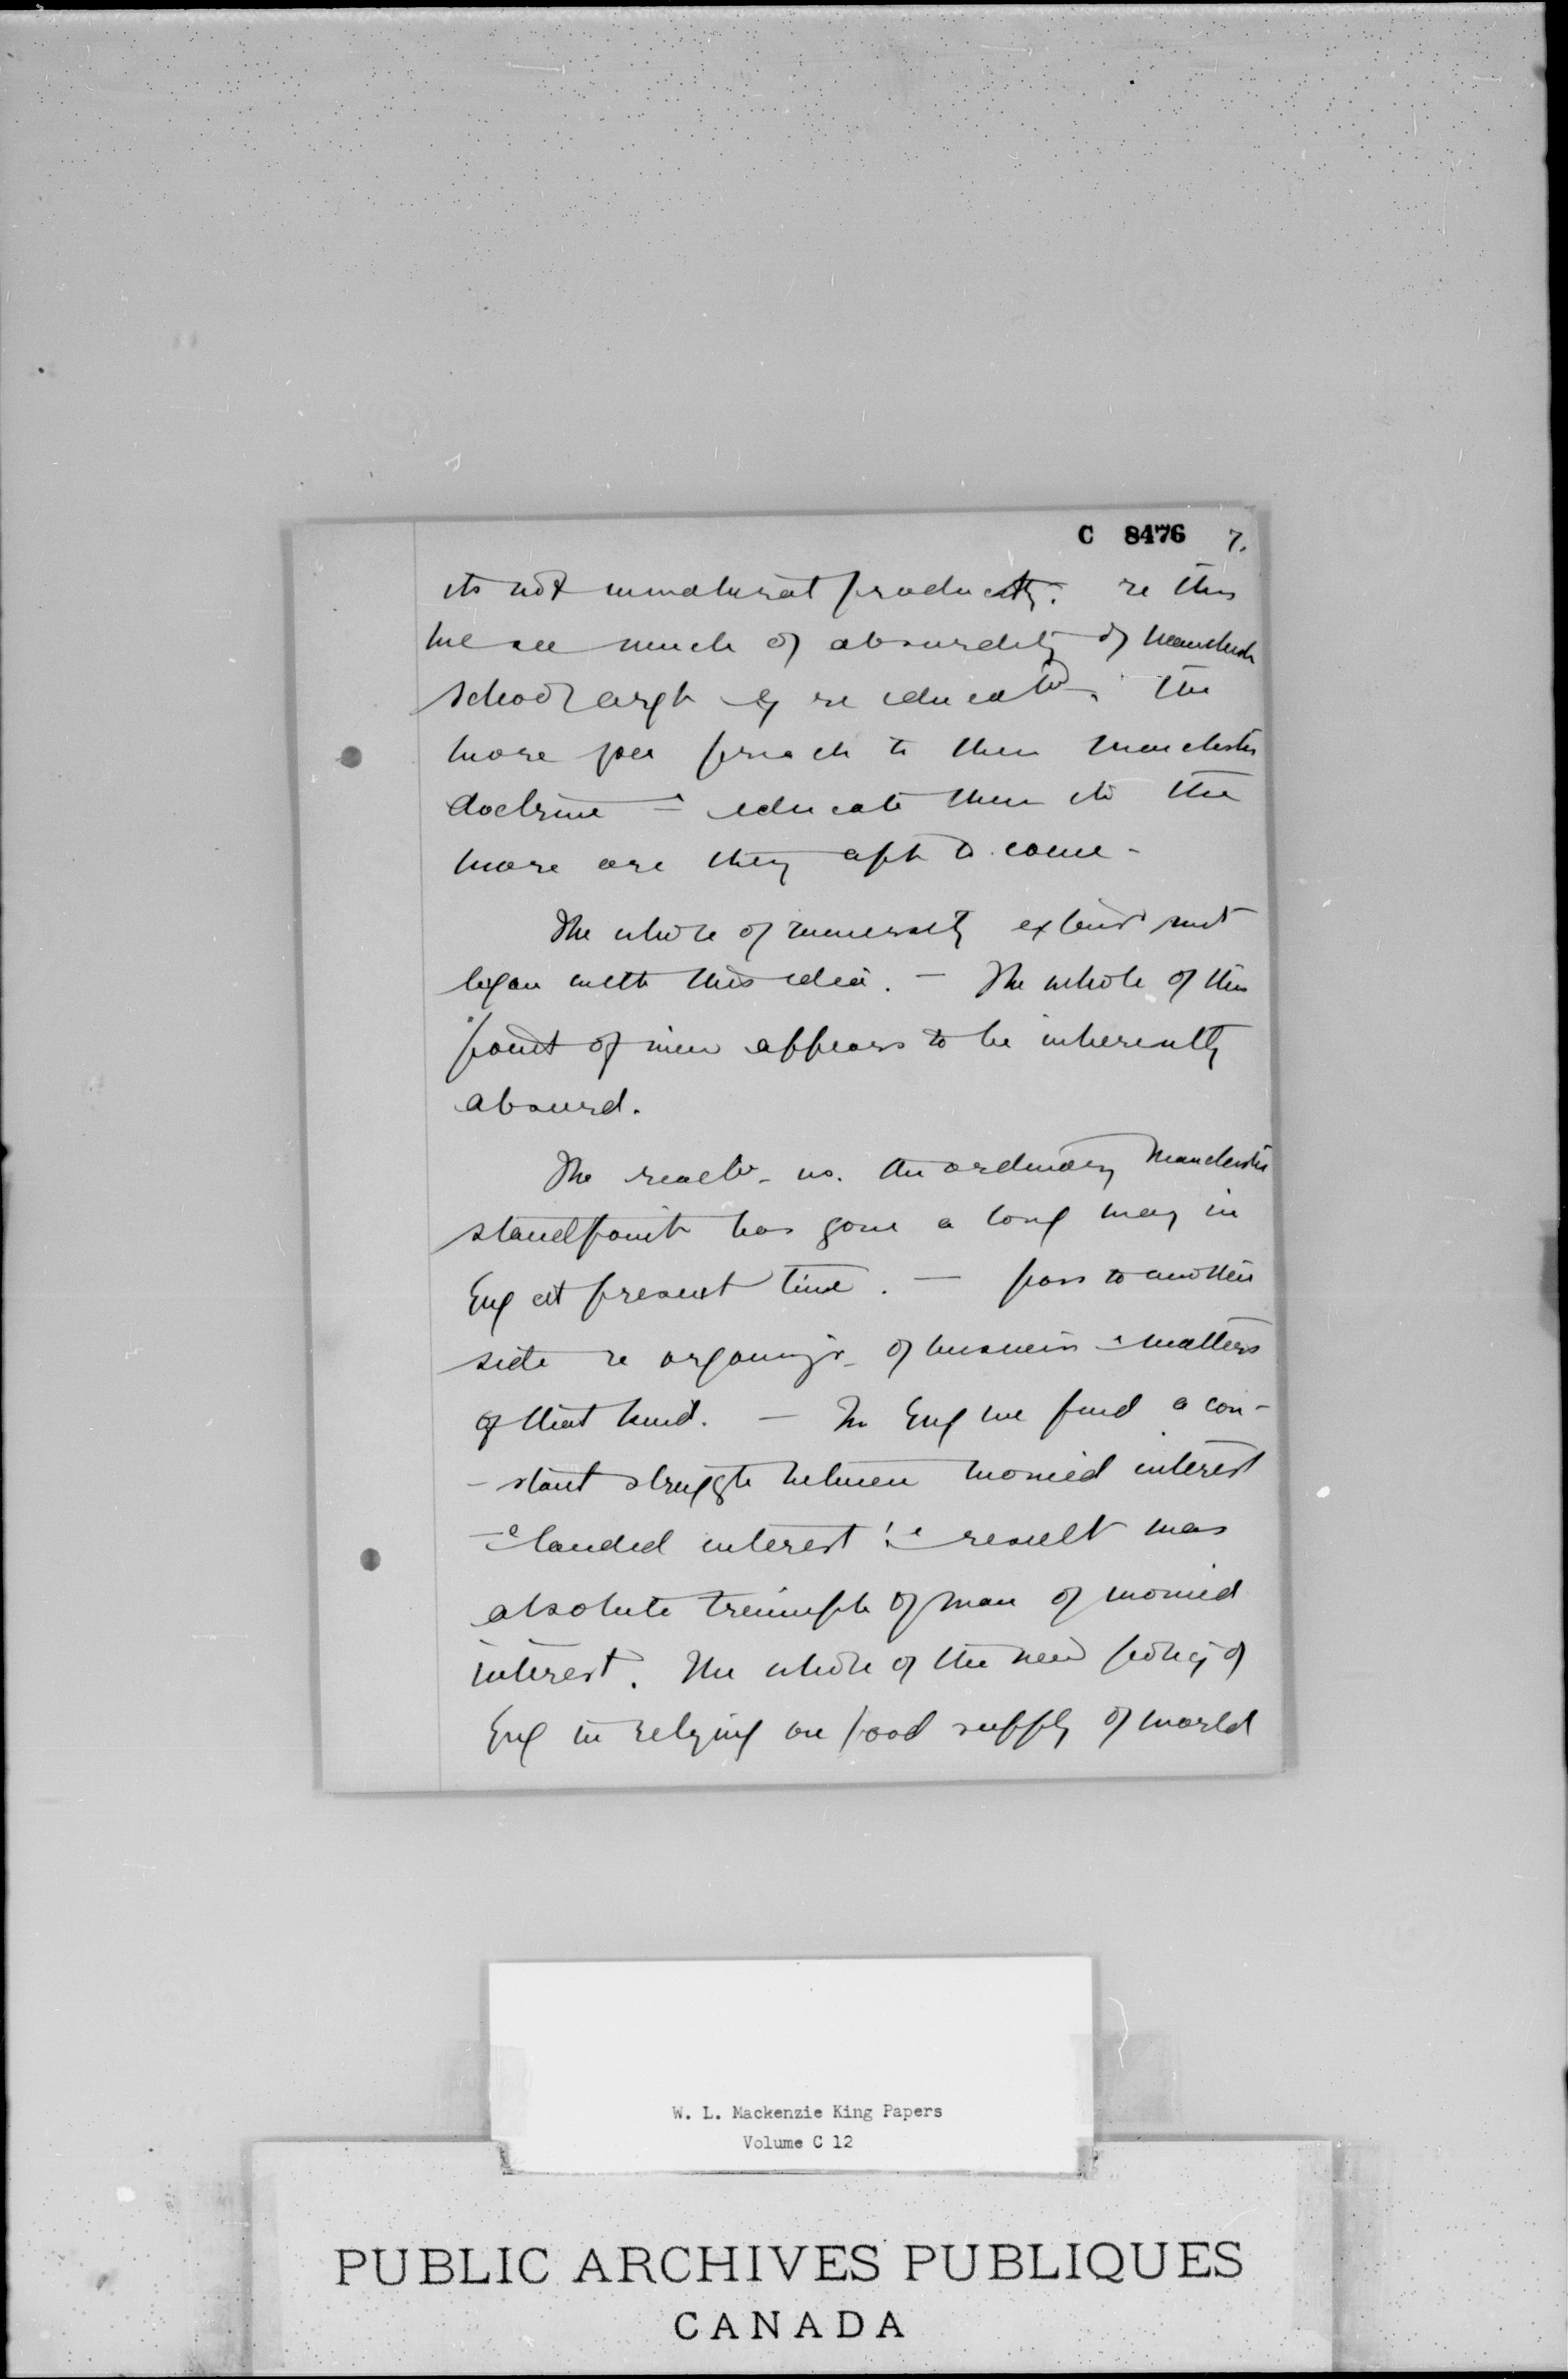 C 8476 7.
its not immaturat product. re this
we see much of absurdity of Manchest
school argt eg re educatn. The
more you preach to them Manchester
doctrine & educate them to the
more are they apt to come -
The whole of university extens mvt
began with this idea. - The whole of this
point of view appears to be inherently
absurd.
The reactn vs. the ordinary Manchester
standpoint has gone a long way in
Eng at present time. - pass to another
side re organizn of business & matters
of that kind. - In Eng we find a con-
- stant struggle between monied interest
& landed interest & result was
absolute triumph of man of monied
interest. The whole of the new policy of
Eng in relying on food supply of world
W. L. Mackenzie King Papers
Volume C 12
PUBLIC ARCHIVES PUBLIQUES
CANADA